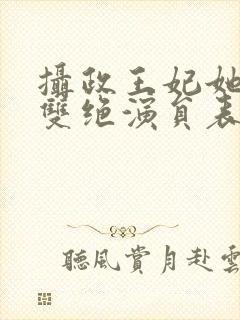 攝政王妃她
雙绝演員表
聽風賞月赴雲